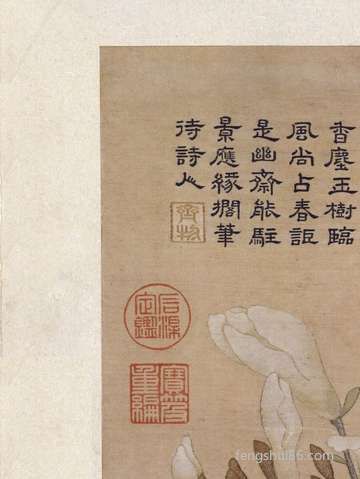 香塵玉樹臨
風尚占春詎
是幽齋能駐
景應緣擱筆
待詩人
齊物
石渠
定鑑
寶笈
重編
fengshui86.com